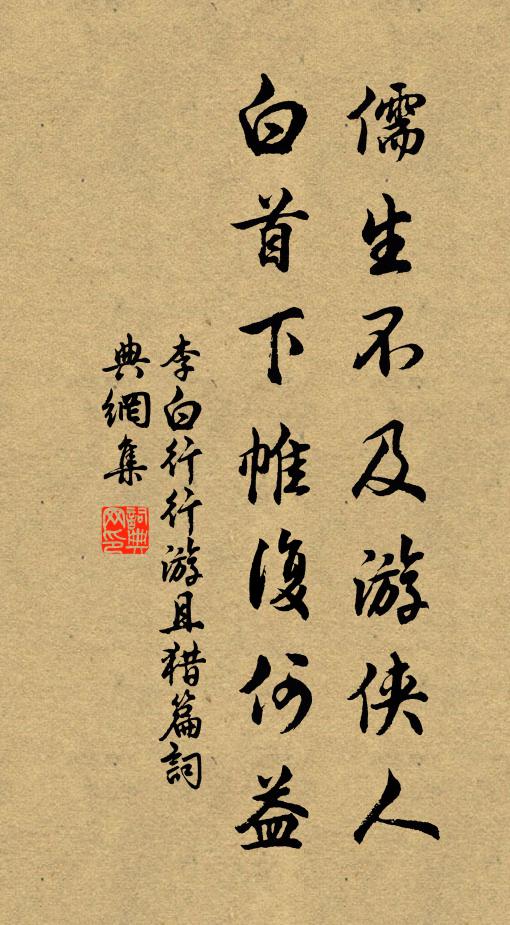 儒生不及游侠人
白首下帷復何益
李白行行游且猎篇詞
典網集
詞典
网印